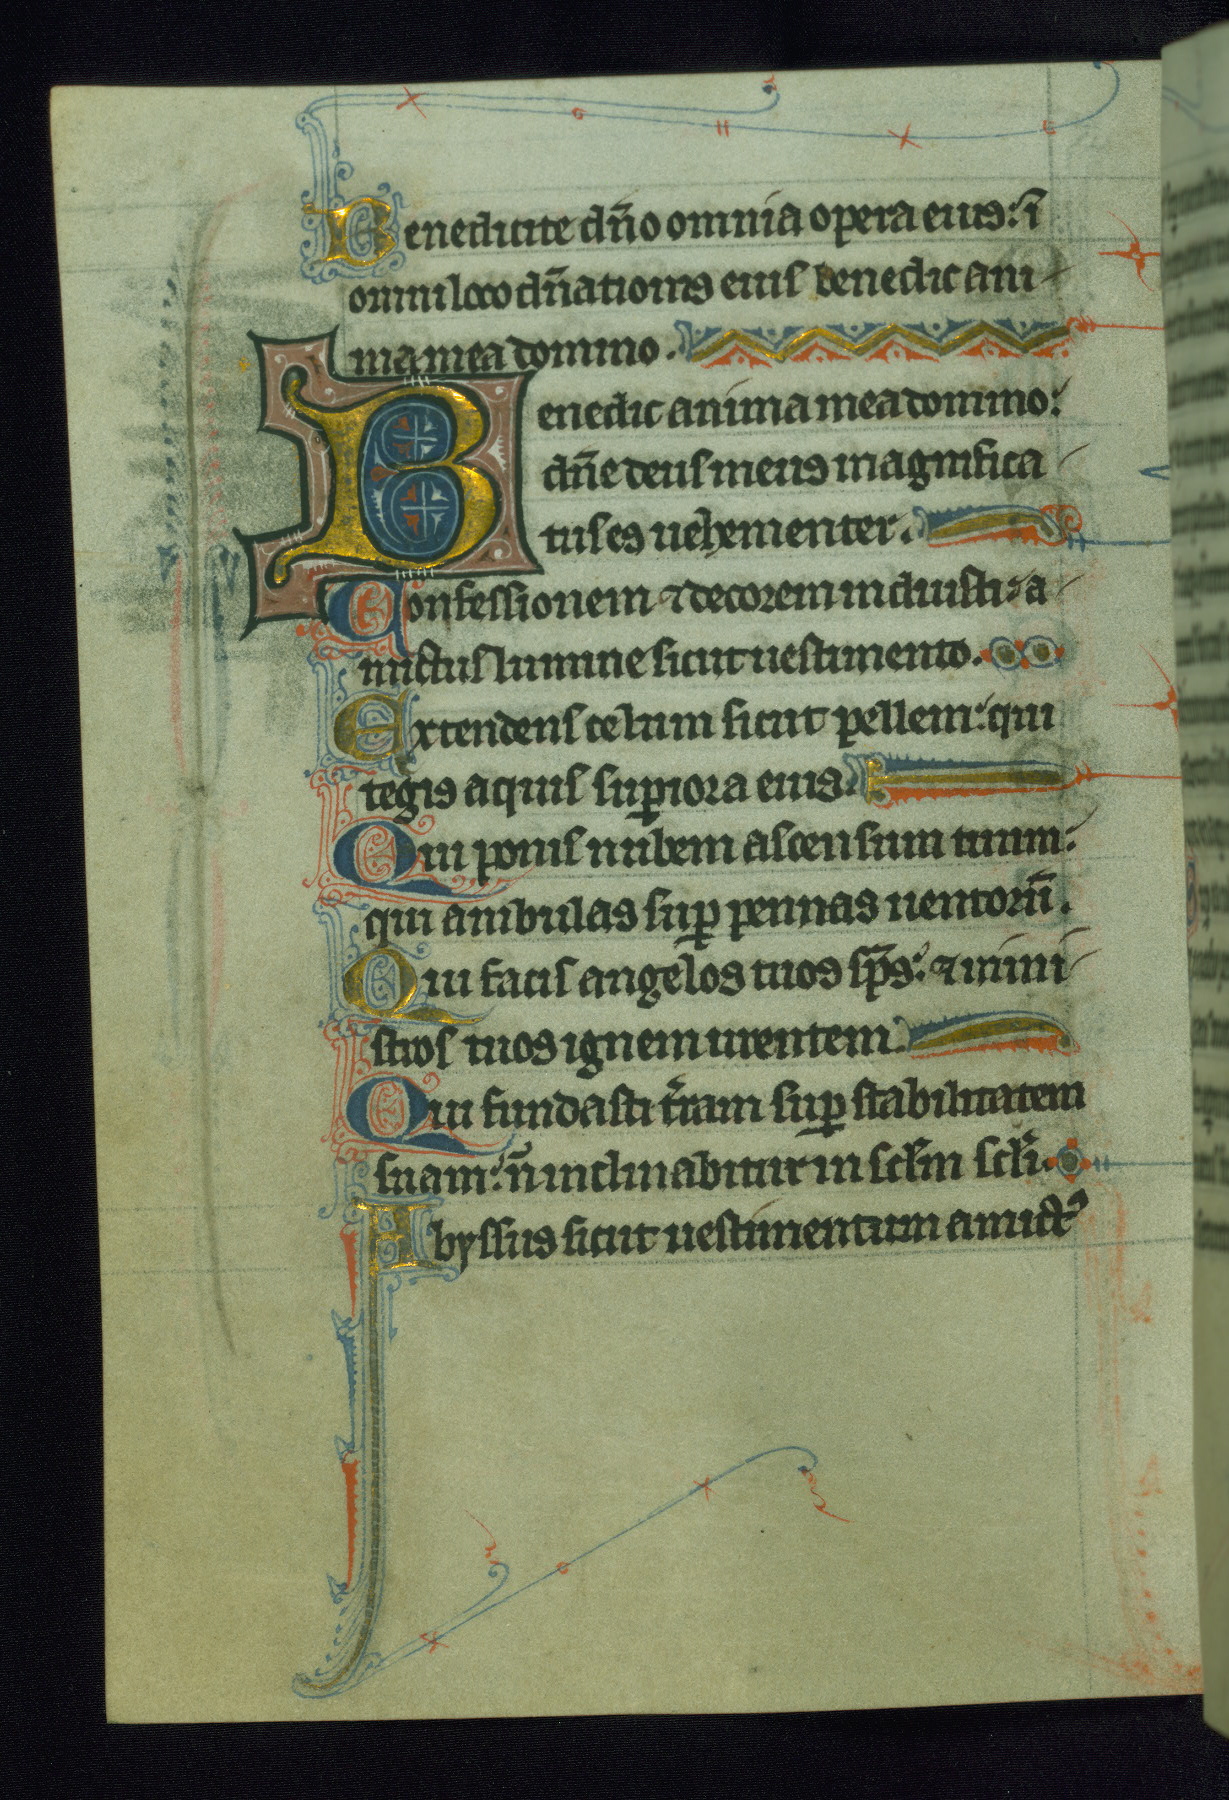 Benedicite dn̄o omnia opera eius: ī
omni loco dn̄ationis eius benedic ani
ma mea domino.
Benedic anima mea domino:
dn̄e deus meus magnifica
tus es uehementer.
Confessionem ⁊ decorem induisti: a
mictus lumine sicut uestimento.
Extendens celum sicut pellem: qui
tegis aquis suꝑiora eius.
Qui ponis nubem ascensum tuum:
qui ambulas suꝑ pennas uentorū.
Qui facis angelos tuos sp̄s: ⁊ mini
stros tuos ignem urentem.
Qui fundasti t̄ram suꝑ stabilitatem
suam: n̄ inclinabitur in sc̄lm sc̄li.
Abyssus sicut uestimentum amictꝰ